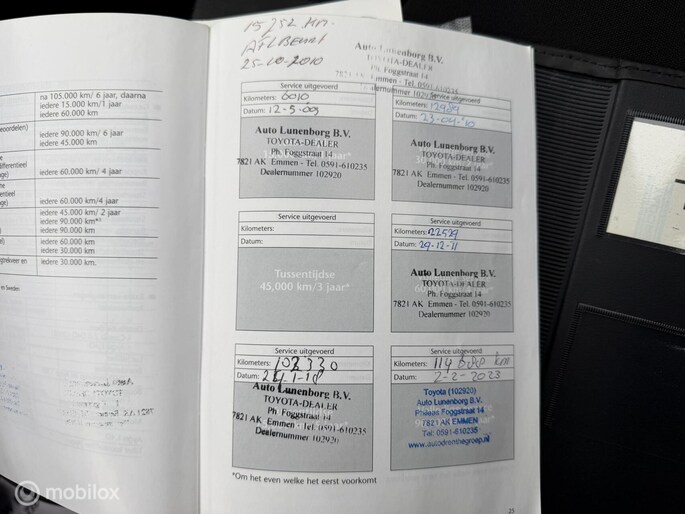 na 105.000 km/ 6 jaar, daarna
iedere 15.000 km/1 jaar
iedere 60.000 km
eoordelen)
iedere 90.000 km/ 6 jaar
iedere 45.000 km
differentieel
iedere 60.000 km/ 4 jaar
iedere 60.000 km/4 jaar
iedere 45.000 km/ 2 jaar
iedere 90.000 km*³
iedere 90.000 km
iedere 60.000 km
iedere 30.000 km
gtrekveer en
iedere 30.000 km.
15252 km.
25-10-2010
Auto Lunenborg B.V.
TOYOTA-DEALER
Ph. Foggstraat 14
7821 AK Emmen - Tel. 0591-610235
Service uitgevoerd
Kilometers: 6010
Datum: 12-5-09
Auto Lunenborg B.V.
TOYOTA-DEALER
Ph. Foggstraat 14
7821 AK Emmen - Tel. 0591-610235
Dealernummer 102920
Service uitgevoerd
Kilometers:
Datum: 23-04-'10
Auto Lunenborg B.V.
TOYOTA-DEALER
Ph. Foggstraat 14
7821 AK Emmen - Tel. 0591-610235
Dealernummer 102920
Service uitgevoerd
Kilometers:
Datum:
Tussentijdse
45,000 km/3 jaar*
Service uitgevoerd
Kilometers: 22539
Datum: 29-12-11
Auto Lunenborg B.V.
TOYOTA-DEALER
Ph. Foggstraat 14
7821 AK Emmen - Tel. 0591-610235
Dealernummer 102920
Service uitgevoerd
Kilometers: 102330
Datum:
Auto Lunenborg B.V.
TOYOTA-DEALER
Ph. Foggstraat 14
7821 AK Emmen - Tel. 0591-610235
Dealernummer 102920
Service uitgevoerd
Kilometers: 114 600 km
Datum: 2-2-2023
Toyota (102920)
Auto Lunenborg B.V.
Phileas Foggstraat 14
7821 AK EMMEN
Tel: 0591-610235
www.autodrenthegroep.nl
*Om het even welke het eerst voorkomt
25
mobilox